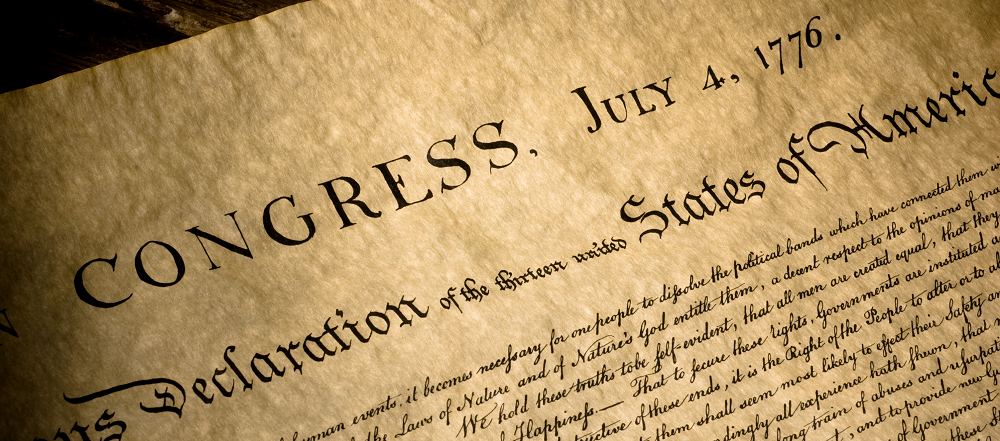 CONGRESS, JULY 4, 1776.
Declaration of the thirteen united States of Americ
events, it becomes necessary for one people to dissolve the political bands which have connected them
the Laws of Nature and of Nature's God entitle them, a decent respect to the opinions of ma
We hold these truths to be self-evident, that all men are created equal, that they
Happiness.— That to secure these rights, Governments are instituted a
of these ends, it is the Right of the People to alter or to a
them shall seem most likely to effect their Safety an
all experience hath shewn, that
train of abuses and usurpat
and to provide new